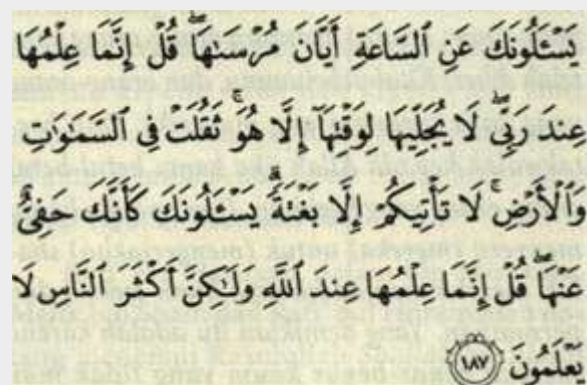 يَسْـَٔلُونَكَ عَنِ ٱلسَّاعَةِ أَيَّانَ مُرْسَىٰهَا ۖ قُلْ إِنَّمَا عِلْمُهَا
عِندَ رَبِّى ۖ لَا يُجَلِّيهَا لِوَقْتِهَآ إِلَّا هُوَ ۚ ثَقُلَتْ فِى ٱلسَّمَـٰوَٰتِ
وَٱلْأَرْضِ ۚ لَا تَأْتِيكُمْ إِلَّا بَغْتَةً ۗ يَسْـَٔلُونَكَ كَأَنَّكَ حَفِىٌّ
عَنْهَا ۖ قُلْ إِنَّمَا عِلْمُهَا عِندَ ٱللَّهِ وَلَـٰكِنَّ أَكْثَرَ ٱلنَّاسِ لَا
يَعْلَمُونَ ١٨٧